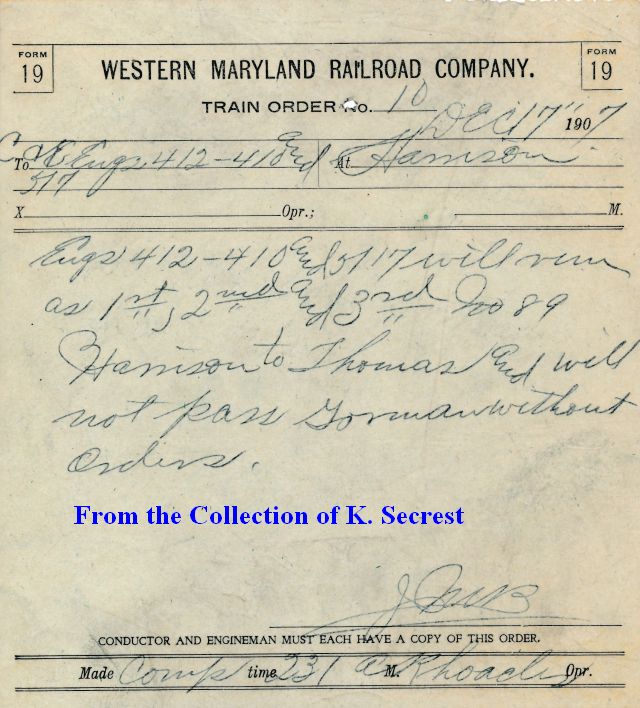 FORM 19
WESTERN MARYLAND RAILROAD COMPANY.
FORM 19
TRAIN ORDER No. 10
Dec 17" 1907
To C & E Engs 412-410 and At Harrison
517
X Opr.; M.
Engs 412-410 and 517 will run
as 1st, 2nd and 3rd No 89
Harrison to Thomas and will
not pass Gorman without
orders.
From the Collection of K. Secrest
CONDUCTOR AND ENGINEMAN MUST EACH HAVE A COPY OF THIS ORDER.
Made Comp time 231 a M. Rhoades Opr.